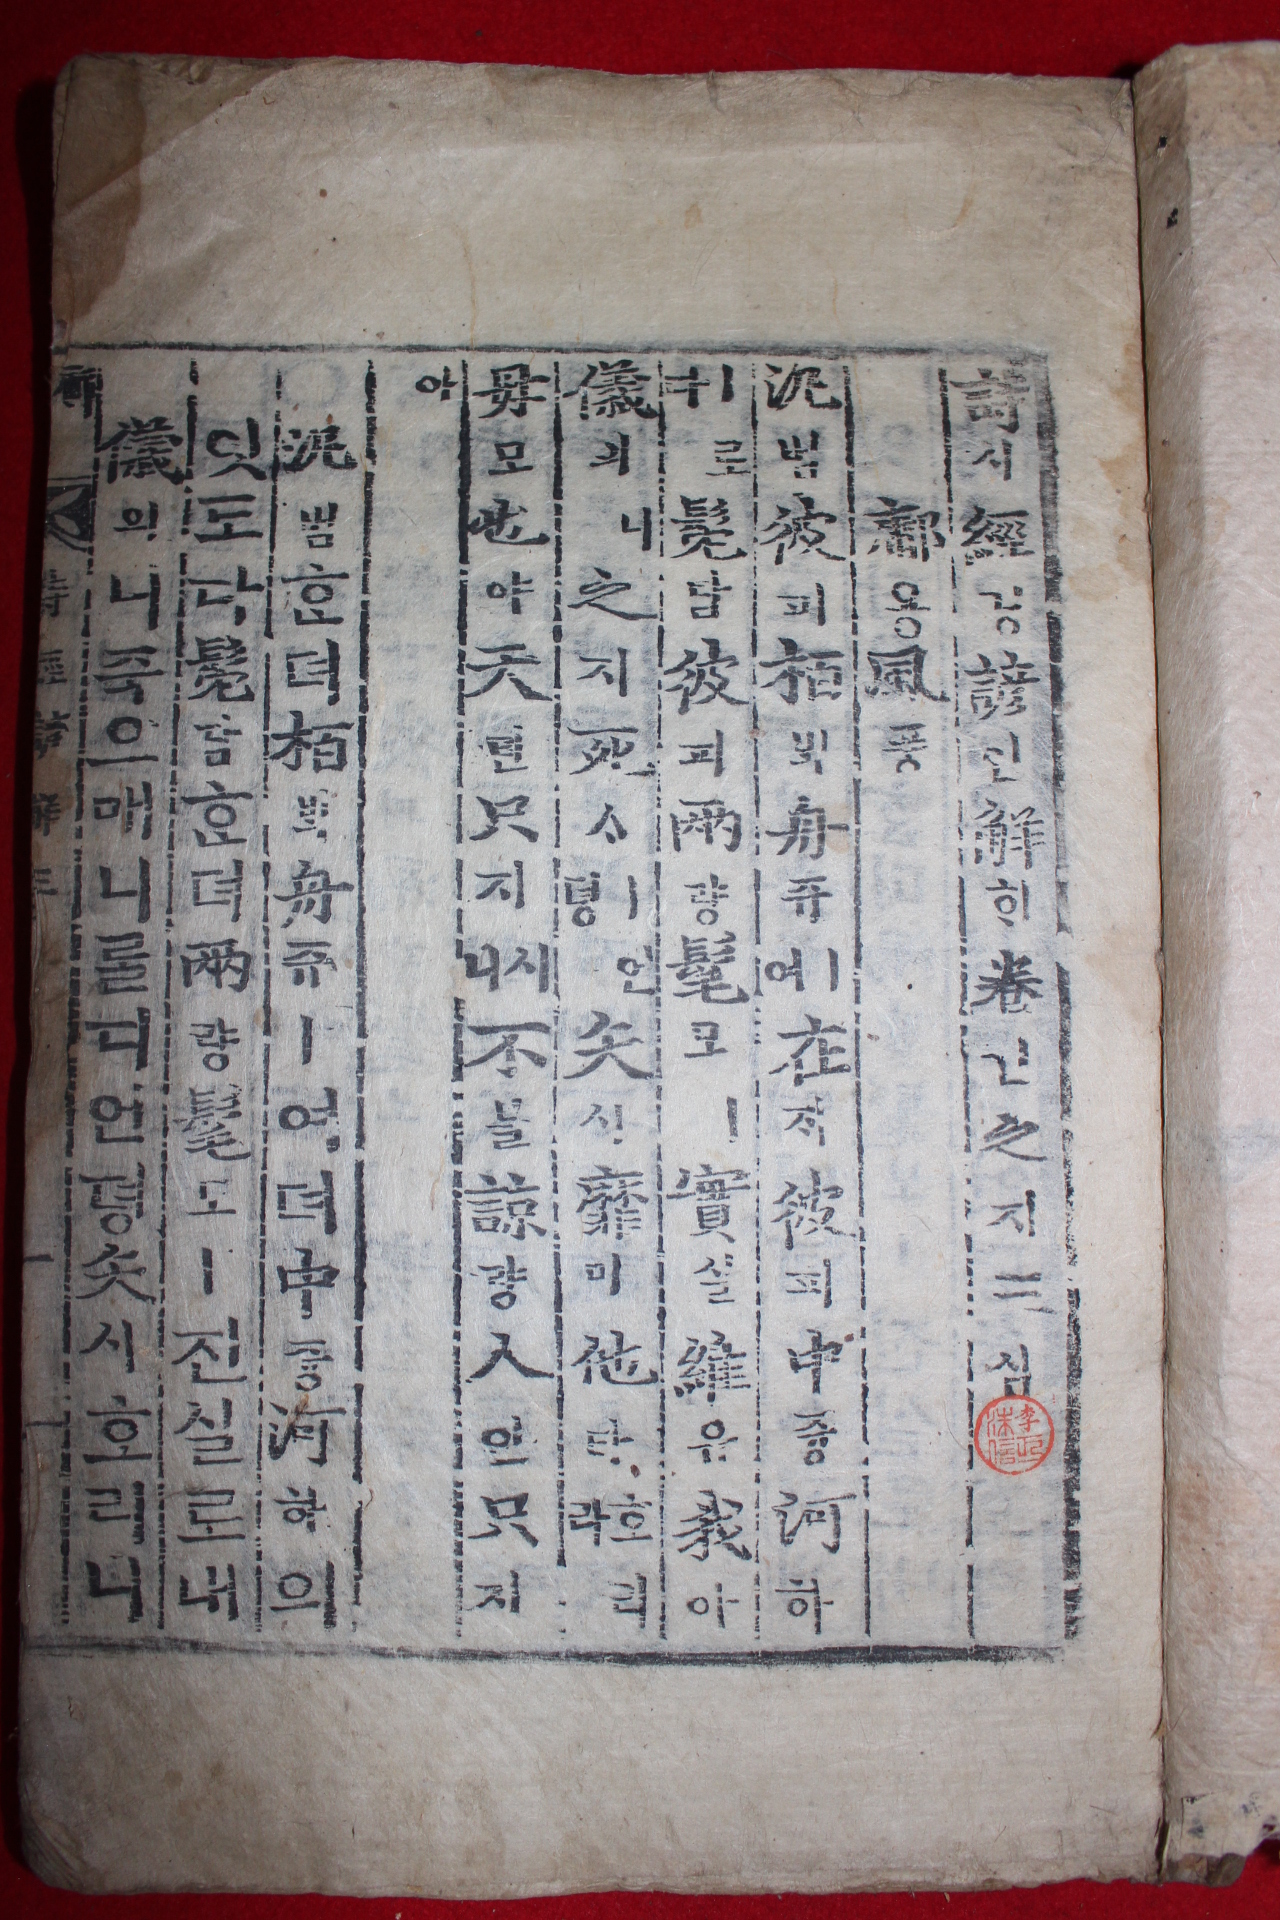 詩시經경諺언解ᄒᆡ卷권之지三삼
鄘용風풍
汎범彼피栢ᄇᆡᆨ舟쥬ㅣ여在ᄌᆡ彼피中듕河하
ㅣ로다髧담彼피兩량髦모ㅣ實실維유我아
儀의니之지死ᄉᆞㅣ언뎡矢시靡미他타호리라
母모也야天텬只지시니不블諒량人인只지
아
汎범ᄒᆞᆫ뎌栢ᄇᆡᆨ舟쥬ㅣ여뎌中듕河하의
잇도다髧담ᄒᆞᆫ뎌兩량髦모ㅣ진실로내
儀의니죽으매니를디언뎡矢시호ᄃᆡ다
詩經諺解三